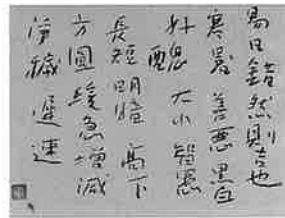 易曰錯然則吉也
寒暑 善悪 黒白
好醜 大小 智愚
長短 明暗 高下
方圓 緩急 増減
浄穢 遅速